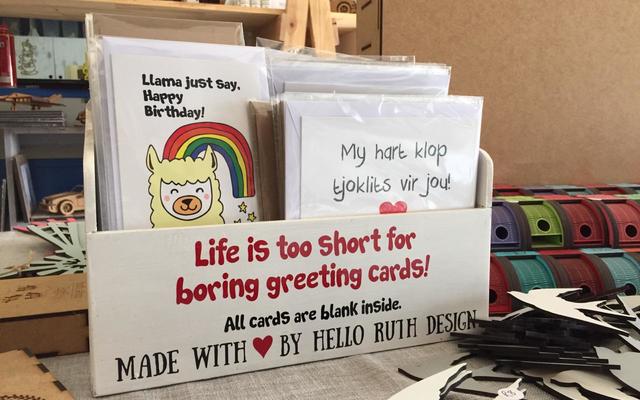 Llama just say,
Happy
Birthday!
My hart klop
tjoklits vir jou!
Life is too short for
boring greeting cards!
All cards are blank inside.
MADE WITH ❤ BY HELLO RUTH DESIGN